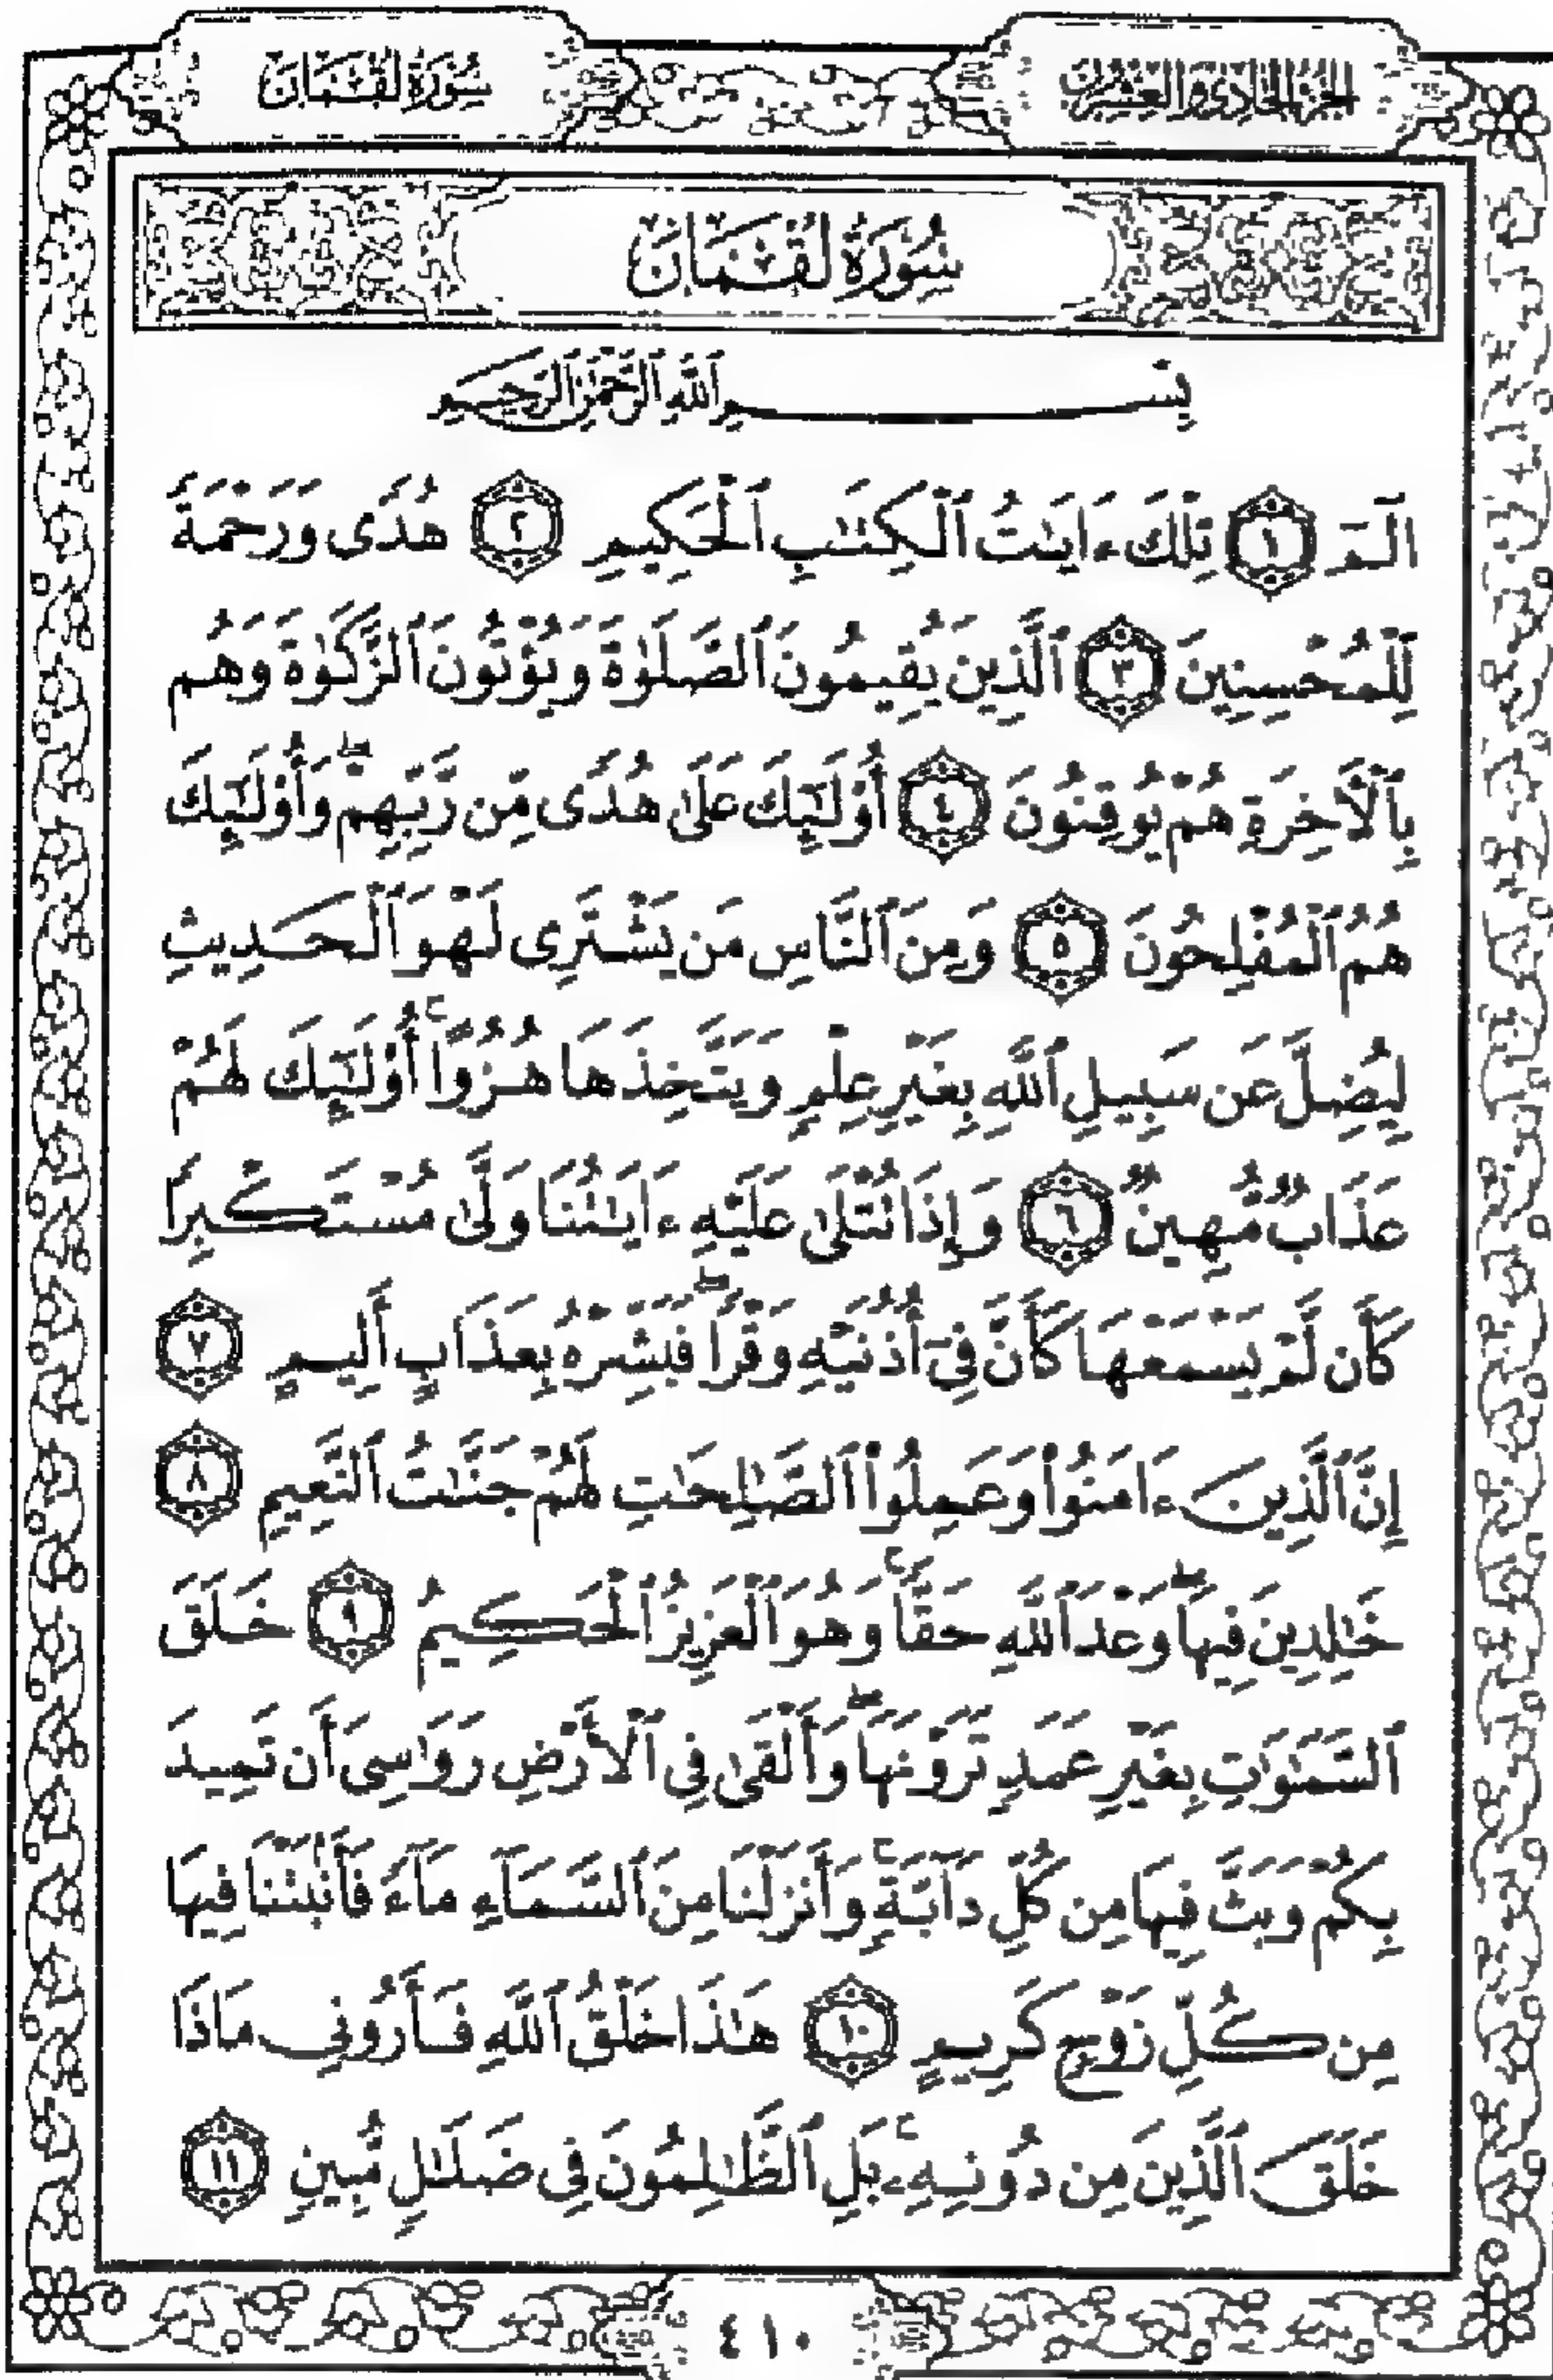 الجزء الحادي والعشرون
سورة لقمان
سُورَةُ لُقْمَان
بِسْمِ ٱللَّهِ ٱلرَّحْمَٰنِ ٱلرَّحِيمِ
الٓمٓ ١ تِلْكَ ءَايَٰتُ ٱلْكِتَٰبِ ٱلْحَكِيمِ ٢ هُدًى وَرَحْمَةً
لِّلْمُحْسِنِينَ ٣ ٱلَّذِينَ يُقِيمُونَ ٱلصَّلَوٰةَ وَيُؤْتُونَ ٱلزَّكَوٰةَ وَهُم
بِٱلْأَخِرَةِ هُمْ يُوقِنُونَ ٤ أُوْلَٰٓئِكَ عَلَىٰ هُدًى مِّن رَّبِّهِمْ ۖ وَأُوْلَٰٓئِكَ
هُمُ ٱلْمُفْلِحُونَ ٥ وَمِنَ ٱلنَّاسِ مَن يَشْتَرِى لَهْوَ ٱلْحَدِيثِ
لِيُضِلَّ عَن سَبِيلِ ٱللَّهِ بِغَيْرِ عِلْمٍ وَيَتَّخِذَهَا هُزُوًا ۚ أُوْلَٰٓئِكَ لَهُمْ
عَذَابٌ مُّهِينٌ ٦ وَإِذَا تُتْلَىٰ عَلَيْهِ ءَايَٰتُنَا وَلَّىٰ مُسْتَكْبِرًا
كَأَن لَّمْ يَسْمَعْهَا كَأَنَّ فِىٓ أُذُنَيْهِ وَقْرًا ۖ فَبَشِّرْهُ بِعَذَابٍ أَلِيمٍ ٧
إِنَّ ٱلَّذِينَ ءَامَنُوا۟ وَعَمِلُوا۟ ٱلصَّٰلِحَٰتِ لَهُمْ جَنَّٰتُ ٱلنَّعِيمِ ٨
خَٰلِدِينَ فِيهَا ۖ وَعْدَ ٱللَّهِ حَقًّا ۚ وَهُوَ ٱلْعَزِيزُ ٱلْحَكِيمُ ٩ خَلَقَ
ٱلسَّمَٰوَٰتِ بِغَيْرِ عَمَدٍ تَرَوْنَهَا ۖ وَأَلْقَىٰ فِى ٱلْأَرْضِ رَوَٰسِىَ أَن تَمِيدَ
بِكُمْ وَبَثَّ فِيهَا مِن كُلِّ دَآبَّةٍ ۚ وَأَنزَلْنَا مِنَ ٱلسَّمَآءِ مَآءً فَأَنۢبَتْنَا فِيهَا
مِن كُلِّ زَوْجٍ كَرِيمٍ ١٠ هَٰذَا خَلْقُ ٱللَّهِ فَأَرُونِى مَاذَا
خَلَقَ ٱلَّذِينَ مِن دُونِهِۦ ۚ بَلِ ٱلظَّٰلِمُونَ فِى ضَلَٰلٍ مُّبِينٍ ١١
٤١٠